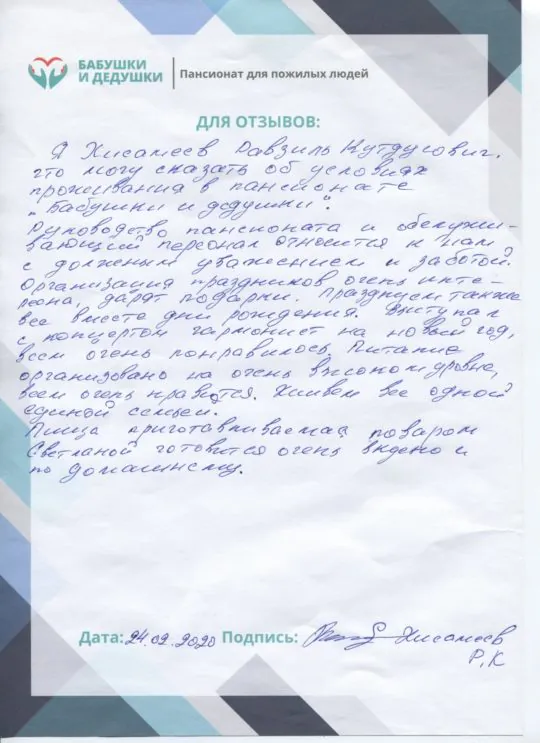 БАБУШКИ
И ДЕДУШКИ
Пансионат для пожилых людей
ДЛЯ ОТЗЫВОВ:
Я Хисамеев Равзиль Кутдусович.
что могу сказать об условиях
проживания в пансионате
„Бабушки и дедушки“.
Руководство пансионата и обслужи-
вающий персонал относится к нам
с должным уважением и заботой.
Организация праздников очень инте-
ресна, дарят подарки. Празднуем также
все вместе дни рождения. Выступал
с концертом гармонист на новый год,
всем очень понравилось. Питание
организовано на очень высоком уровне,
всем очень нравится. Живем все одной
единой семьей.
Пища приготавливаемая поваром
Светланой готовится очень вкусно и
по домашнему.
Дата: 24.02.2020 Подпись: Хисамеев
Р.К